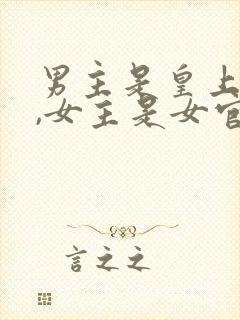 男主是皇上
,女主是女官
言之之